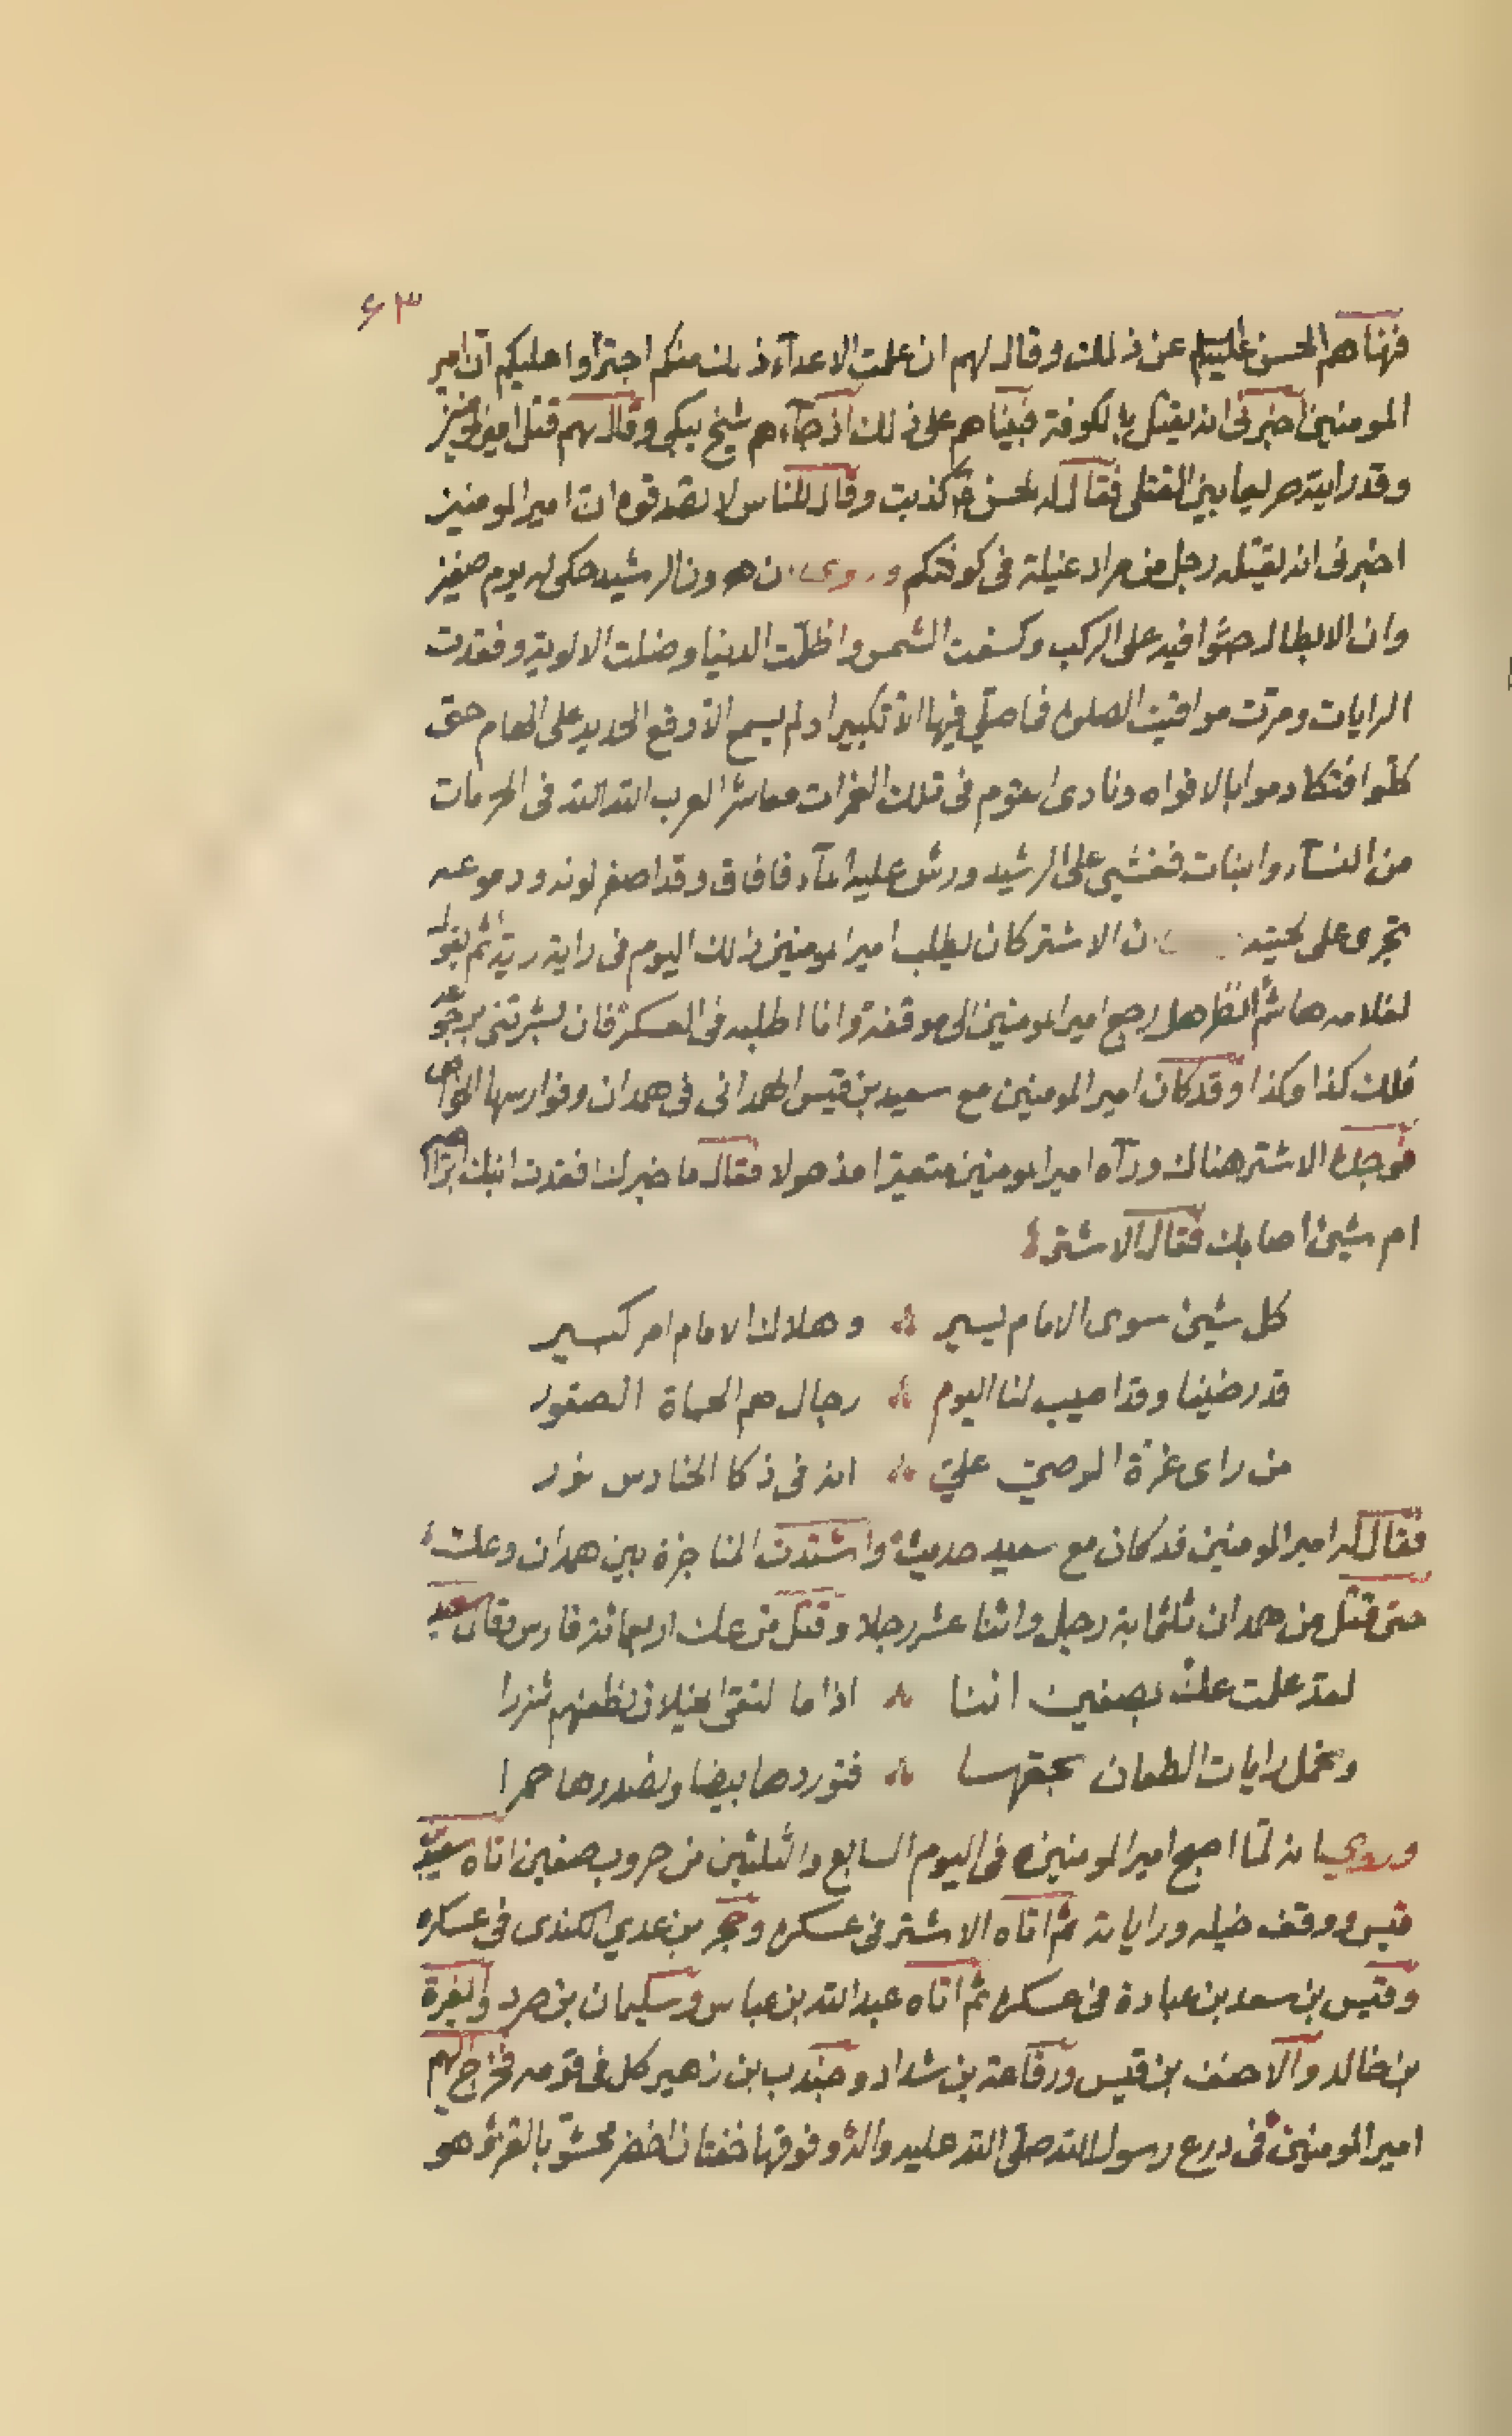 ۶۳
فنهاهم الحسن عليه السلام عن ذلك وقال لهم ان علمت الاعدآء ذلك منكم اجترأوا عليكم انّ امير
المومنين اخبرنى انه يقتل بالكوفة فبيناهم على ذلك اذ جآءهم شيخ يبكى وقال لهم قتل امير المومنين
وقد رايته صريعا بين القتلى فقال له الحسن كذبت وقال للناس لا تصدقوه ان امير المومنين
اخبرنى انه يقتله رجل من مراد غيلة فى كوفتكم وروى ان هرون الرشيد حكى له يوم صفين
وان الابطال جثوا فيه على الركب وكسفت الشمس واظلمت الدنيا وضلت الالوية وفقدت
الرايات ومرّت مواقيت الصلوة فما صلّي فيها الاّ تكبيرا ولم يسمع الاّ وقع الحديد على الهام حتى
كلّوا فتكادموا بالافواه ونادى القوم فى تلك الغمرات معاشر العرب الله الله فى الحرمات
من النسآء والبنات فغشي على الرشيد ورش عليه المآء فافاق وقد اصفر لونه ودموعه
تجرى على لحيته ان الاشتر كان يطلب امير المومنين ذلك اليوم فى راية راية ثم يقول
لغلامه هاشم انظر هل رجع امير المومنين الى موقفه وانا اطلبه فى العسكر فان بشرتنى برجوعه
فلك كذا وكذا وقد كان امير المومنين مع سعيد بن قيس الهمدانى فى همدان وفوارسها الخواص
فوجده الاشتر هناك ورآه امير المومنين متغيرا مذهولا فقال ما خبرك افقدت ابنك ابراهيم
ام شيئ اصابك فقال الاشتر
كل شيئ سوى الامام يسير وهلاك الامام امر كبير
قد رضينا وقد اصيب لنا اليوم رجال هم الحماة الصقور
من راى غرّة الوصي علي انه فى ذكا الحنادس نور
فقال له امير المومنين قد كان مع سعيد حديث واشتدت المناجزة بين همدان وعك
حتى قتل من همدان ثلثماية رجل واثنا عشر رجلا وقتل من عك اربعمائة فارس فقال سعيد
لقد علمت عك بصفين اننا اذا ما لتقى الخيلان نطعنهم شزرا
ونحمل رايات الطعان بحقها فنوردها بيضا ونصدرها حمرا
وروي انه لمّا اصبح امير المومنين فى اليوم السابع والثلثين من حروب صفين اتاه سعيد بن
قيس ووقف خيله وراياته ثم اتاه الاشتر فى عسكره وحجر بن عدي الكندى فى عسكره
وقيس بن سعد بن عبادة فى عسكره ثم اتاه عبد الله بن عباس وسليمان بن صرد والمغيرة
بن خالد والاحنف بن قيس ورفاعة بن شداد وجندب بن زهير كل فى قومه فخرج اليهم
امير المومنين فى درع رسول الله صلى الله عليه واله وفوقها خفتان اخضر محشوّ بالقز وهو